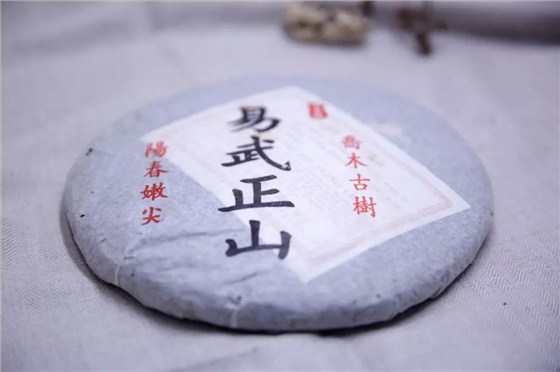 易武正山
喬木古樹
陽春嫩尖